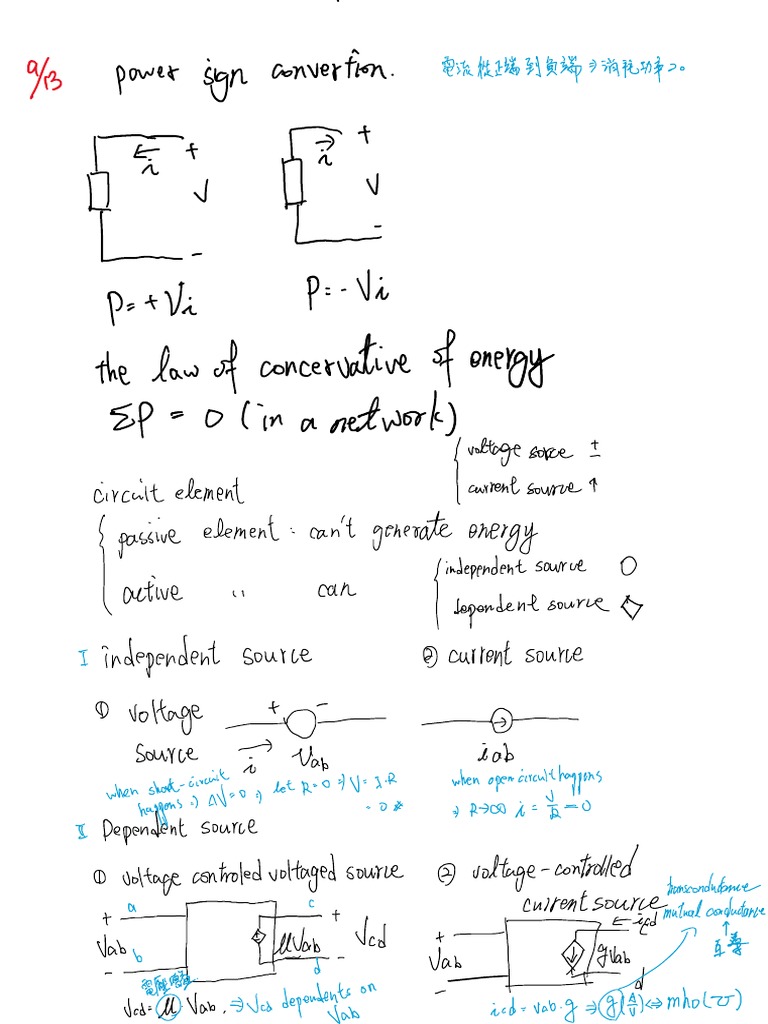 9/13
power sign convertion.
電流從正端到負端 ⇒ 消耗功率
i + V -
i + V -
P = + Vi
P = - Vi
the law of concervative of energy
ΣP = 0 (in a network)
voltage sorce ±
current source ↑
circuit element
passive element : can't generate energy
active 〃 can
independent source ○
dependent source ◇
I independent source
① voltage source
+ -
i Vab
when short-circuit happens ⇒ ΔV=0 ⇒ let R=0 ⇒ V=I·R =0
② current source
iab
when open circuit happens
⇒ R→∞ i = V/R = 0
II Dependent source
① voltage controled voltaged source
+ a c +
Vab μVab Vcd
- b d
Vcd = μ Vab, ⇒ Vcd dependents on Vab
② voltage-controlled
current source
transconductance
mutual conductance
互導
+ icd
Vab gVab
- d
icd = vab·g ⇒ g(A/V) ⇔ mho(℧)